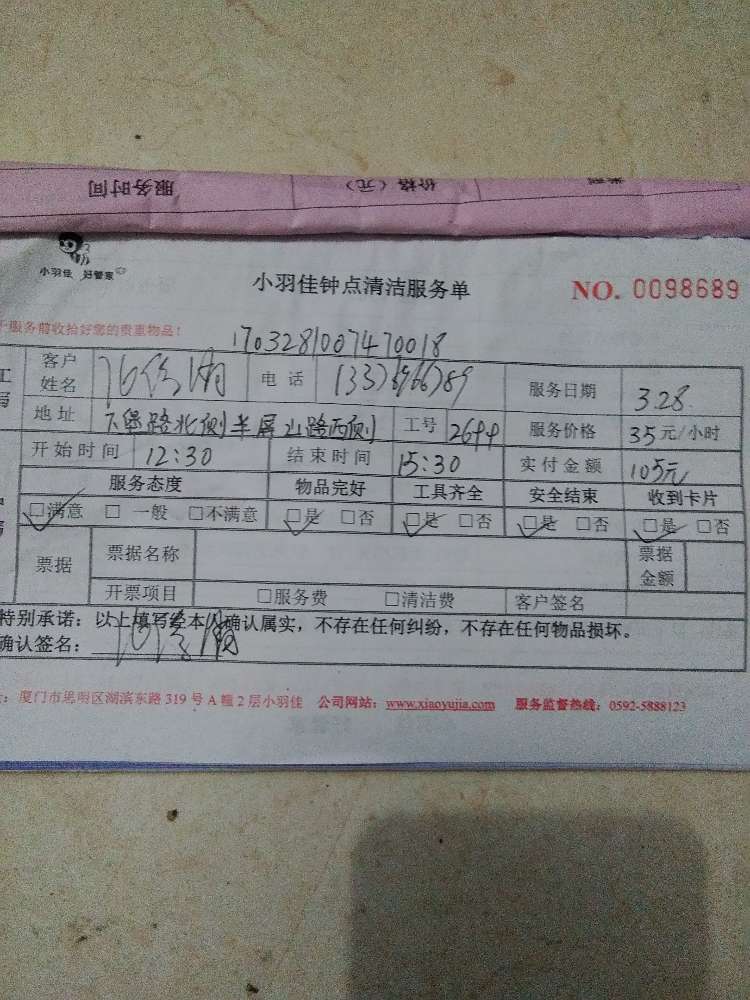 服务时间 价格（元）
小羽佳 好管家
小羽佳钟点清洁服务单 NO. 0098689
服务前收拾好您的贵重物品！
1703281007470018
客户姓名 电话 服务日期 3.28
地址 路北侧半屏山路西侧 工号 2694 服务价格 35元/小时
开始时间 12:30 结束时间 15:30 实付金额 105元
服务态度 物品完好 工具齐全 安全结束 收到卡片
□满意 □一般 □不满意 □是 □否 □是 □否 □是 □否 □是 □否
票据 票据名称 票据金额
开票项目 □服务费 □清洁费 客户签名
特别承诺：以上填写经本人确认属实，不存在任何纠纷，不存在任何物品损坏。
确认签名：
：厦门市思明区湖滨东路 319 号 A 幢 2 层小羽佳 公司网站：www.xiaoyujia.com 服务监督热线：0592-5888123